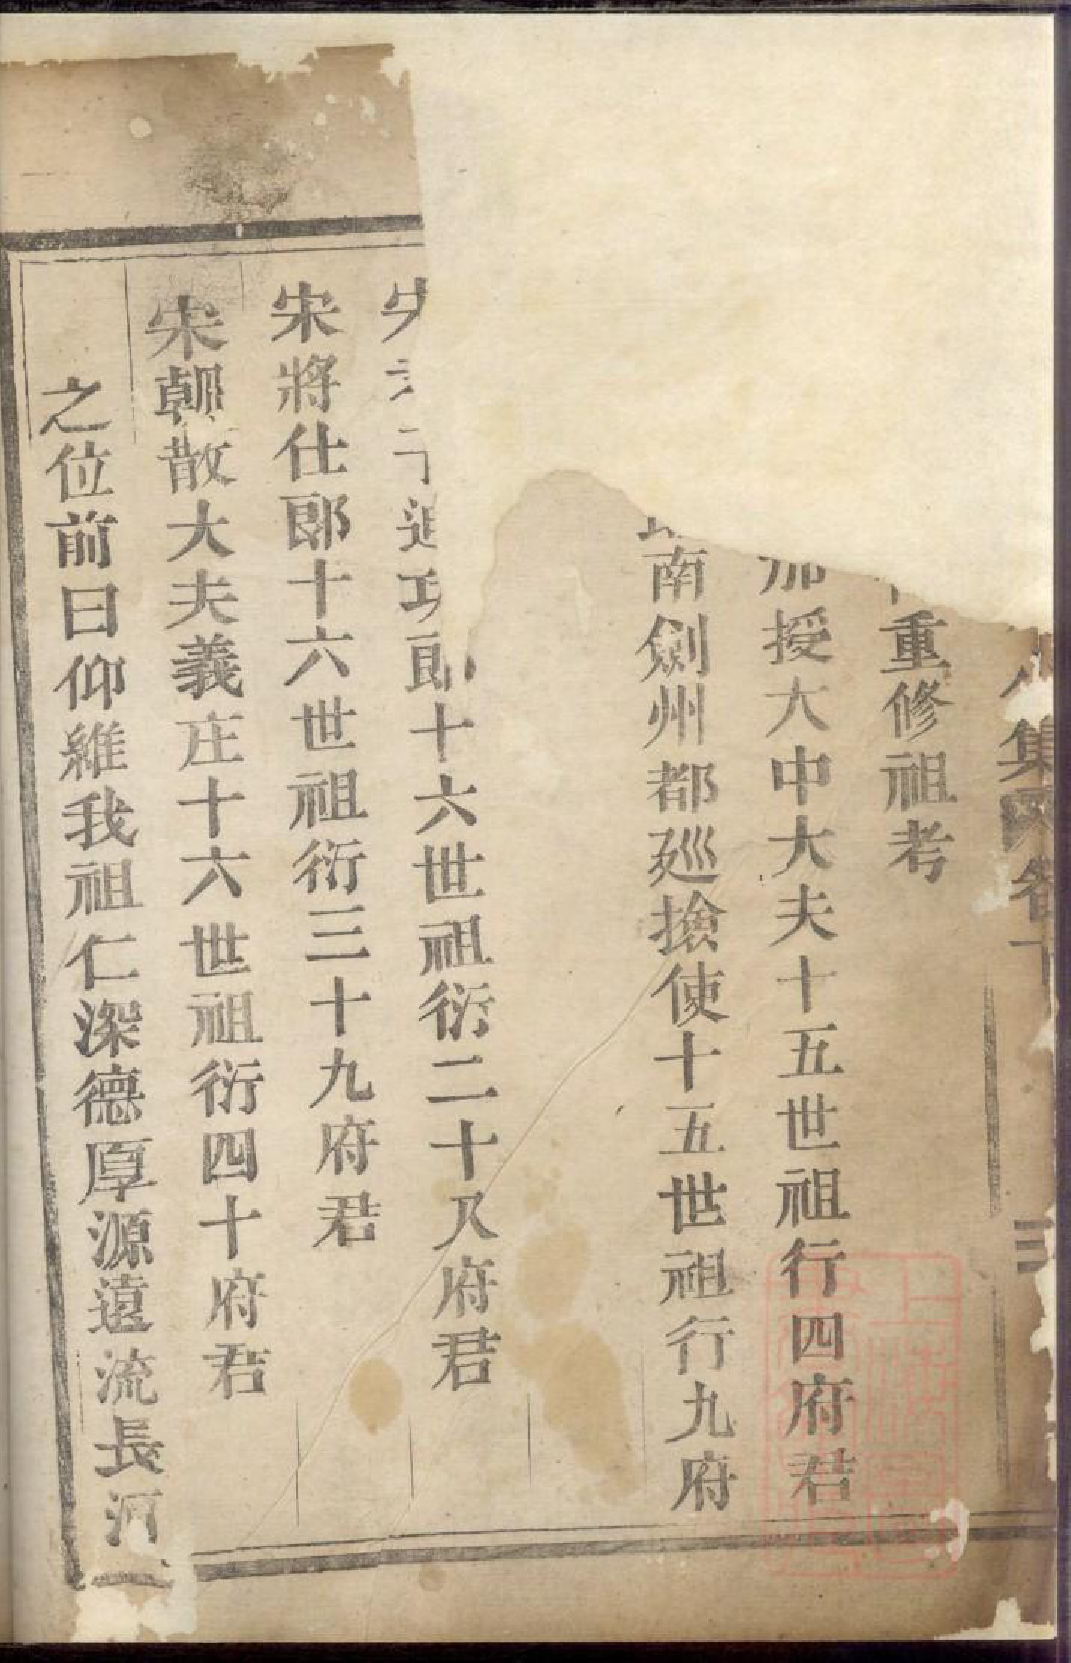 集
重修祖考
加授大中大夫十五世祖行四府君
南劍州都廵撿使十五世祖行九府
迪功郎十六世祖衍二十八府君
宋將仕郎十六世祖衍三十九府君
宋朝散大夫義庄十六世祖衍四十府君
之位前曰仰維我祖仁深德厚源遠流長河